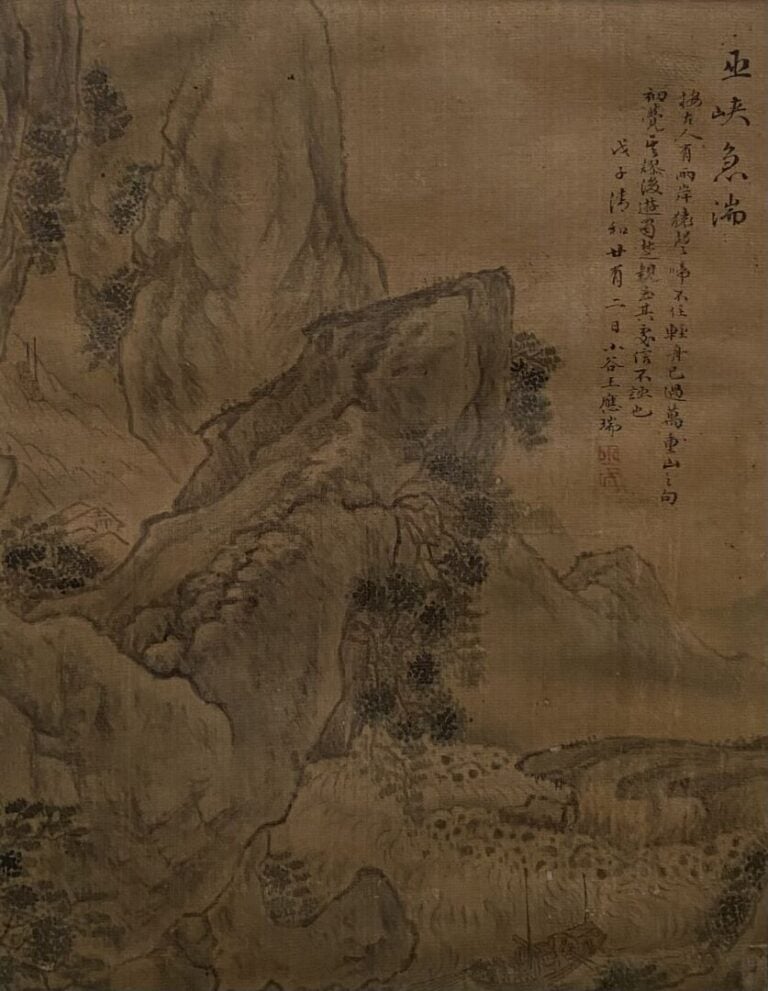 巫峽急湍
按古人有兩岸猿聲啼不住輕舟已過萬重山之句
初覺其謬後遊蜀楚親至其處信不誣也
戊子清和廿有二日小谷王應瑞